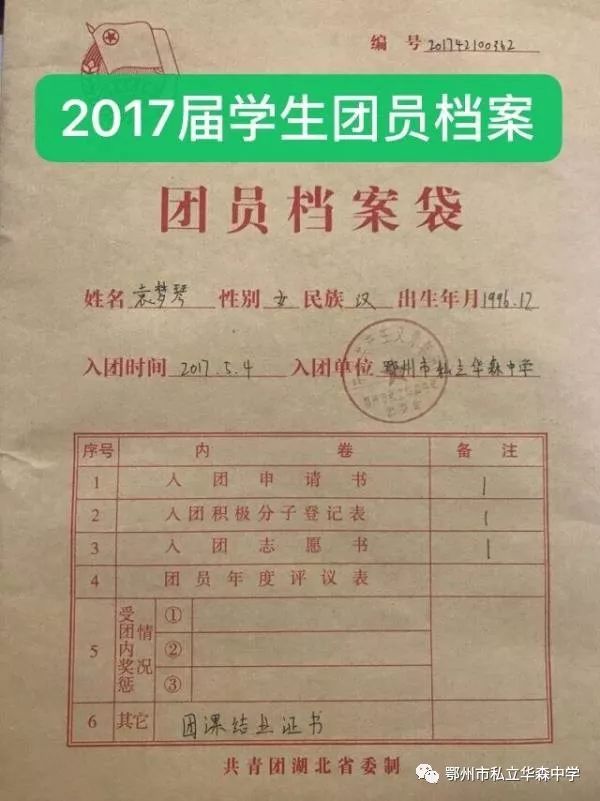 编 号 201742100362
2017届学生团员档案
团员档案袋
姓名 袁梦琴 性别 女 民族 汉 出生年月 1996.12
入团时间 2017.5.4 入团单位 鄂州市私立华森中学
序号 内 卷 备 注
1 入团申请书 1
2 入团积极分子登记表 1
3 入团志愿书 1
4 团员年度评议表
5 受团内奖惩情况 ①
②
③
6 其它 团课结业证书
共青团湖北省委制
鄂州市私立华森中学